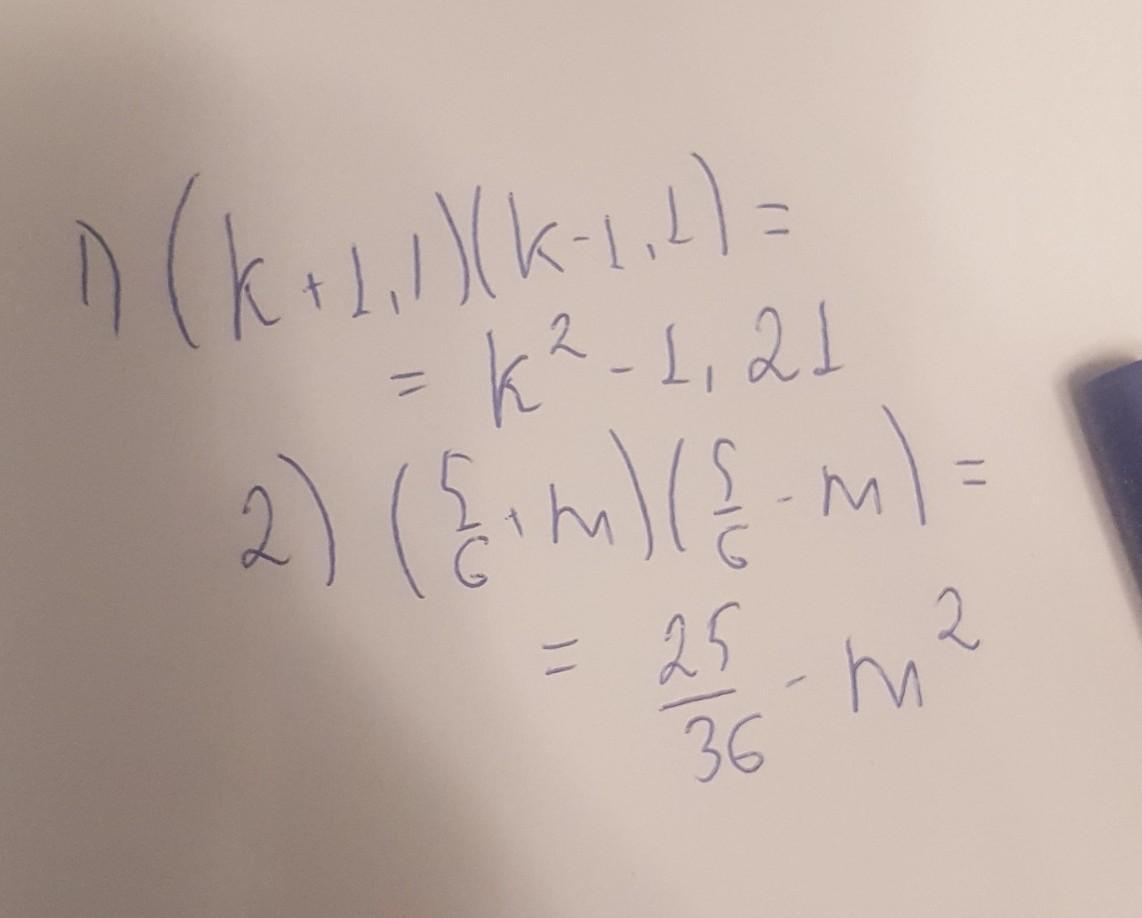 1) (k+1,1)(k-1,1)=
= k² - 1,21
2) (5/6+m)(5/6-m)=
= 25/36 - m²